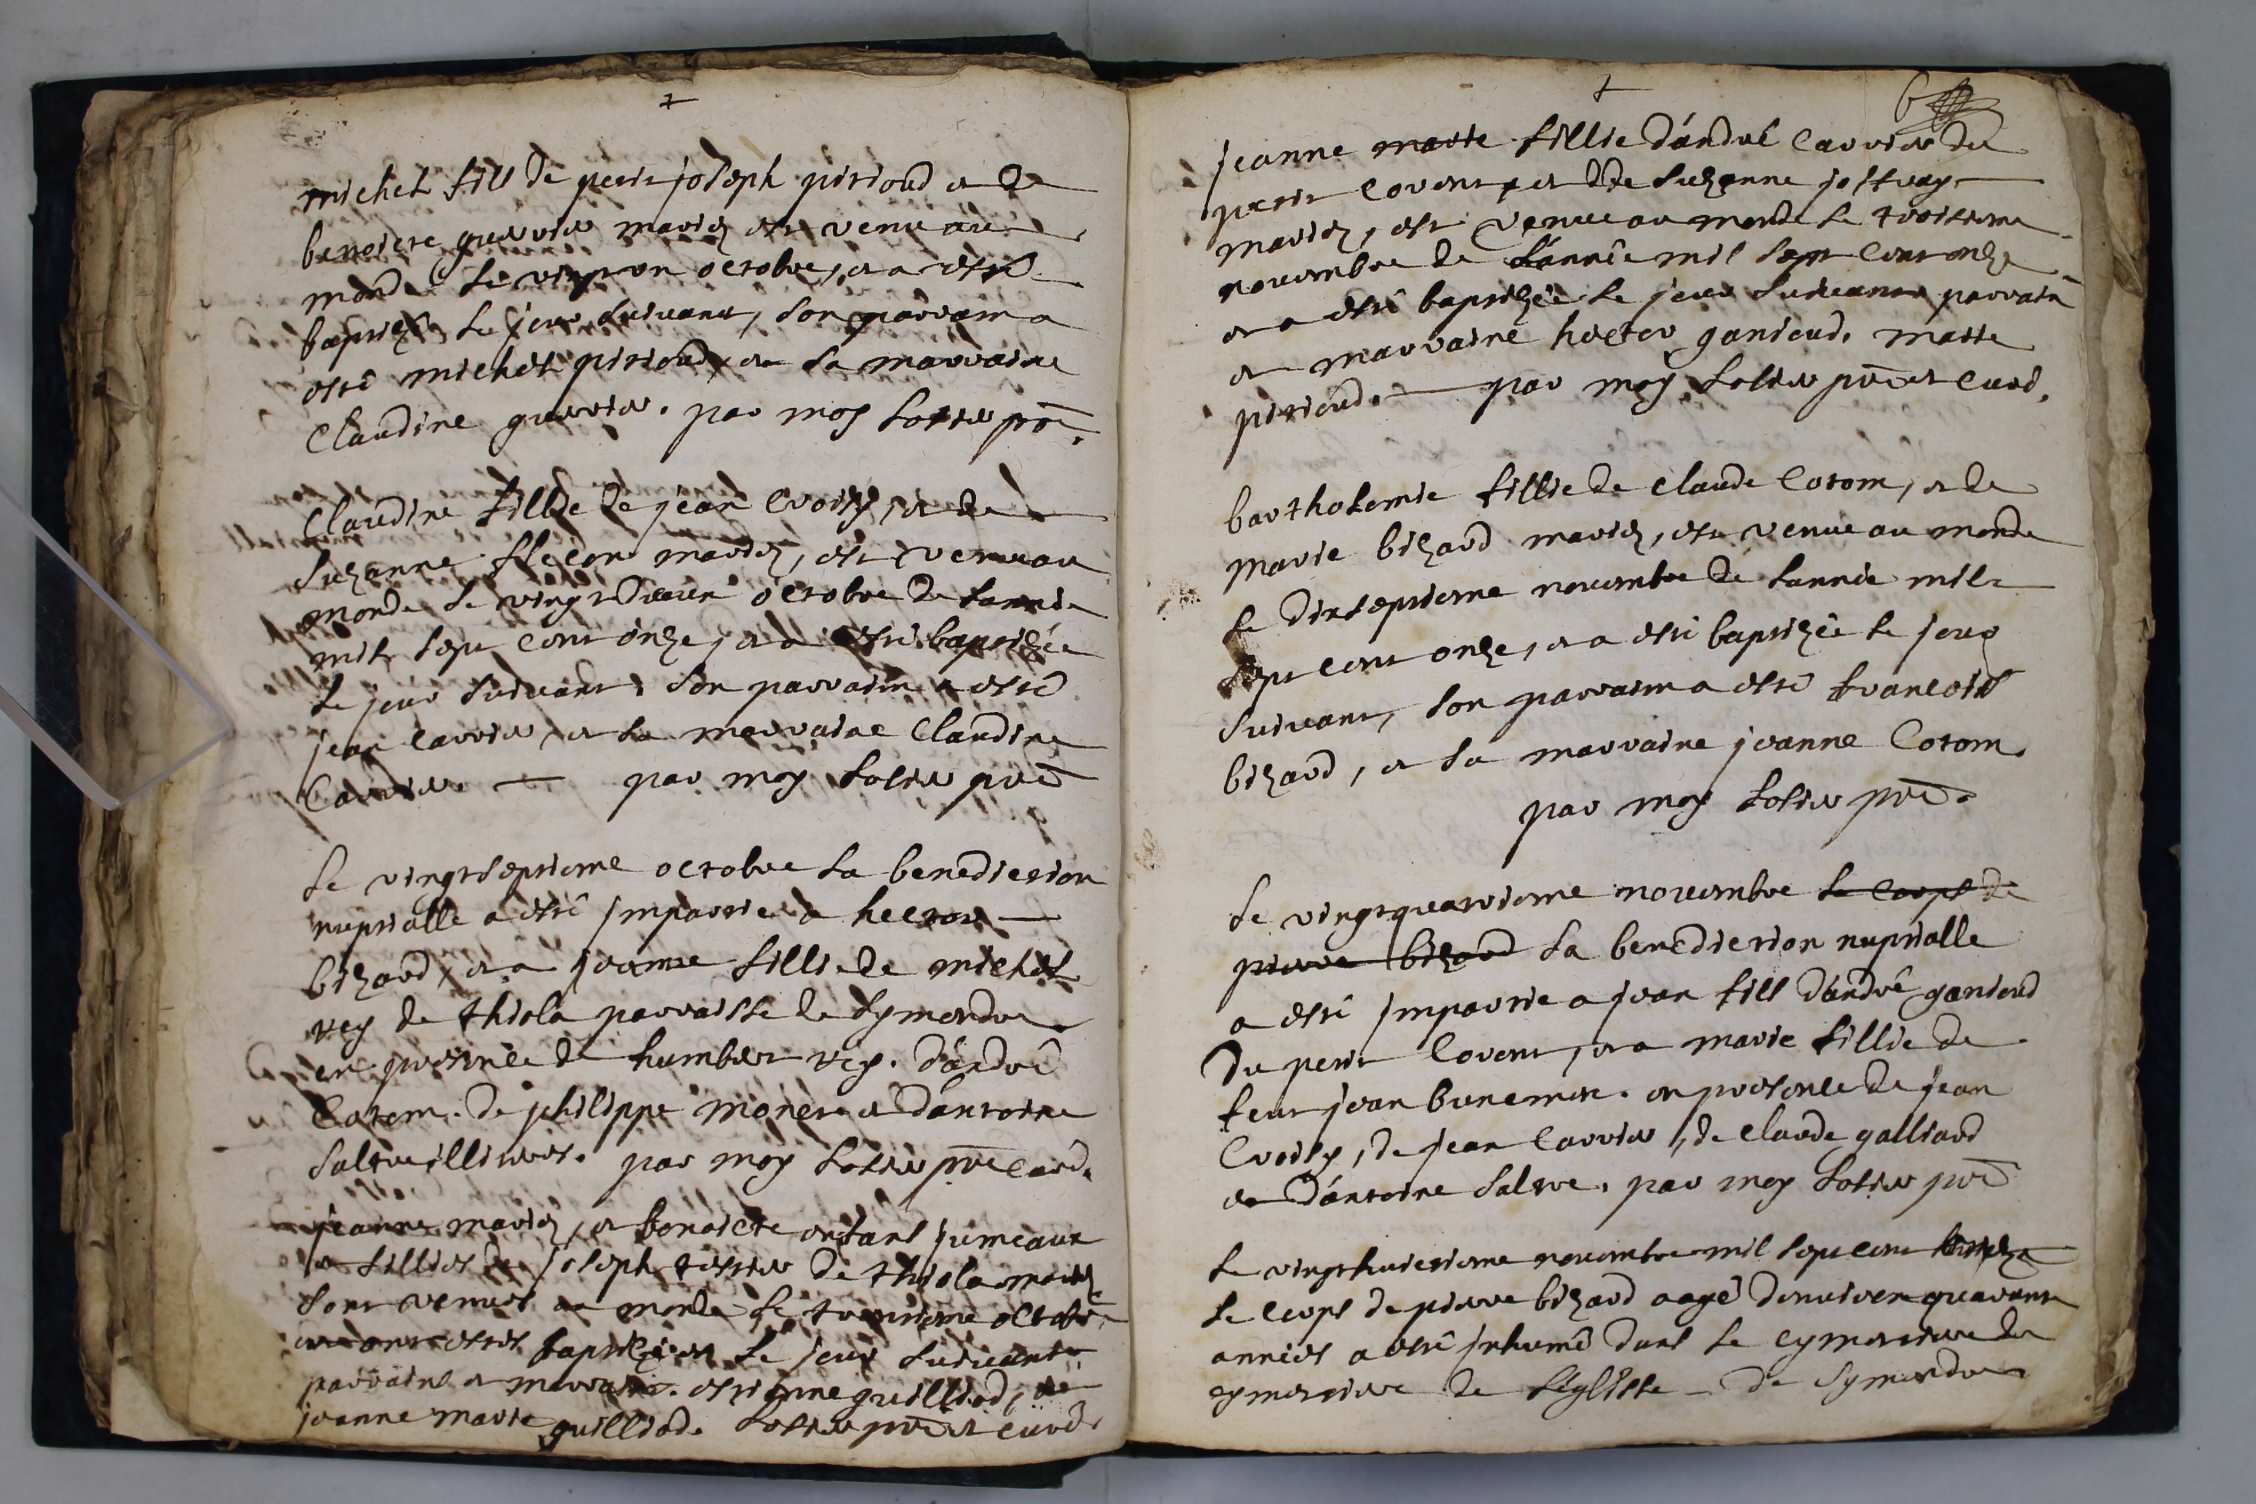 michel fils de petit joseph pitioud et de
benoiete guerrier mariez est venu au
monde le vingt un octobre, et a esté
baptizé le jour suivant, son parrain a
esté michel pitioud, et la marraine
Claudine guerrier. par moy Sottier pre.
Claudine fillie de jean Croisy, et de
Suzanne flecon mariez, est venue au
monde le vingt deux octobre de lannée
mil sept cent onze, et a esté baptizée
le jour suivant, son parrain a esté
jean Carrier, et la marraine Claudine
Carrier. par moy Sottier pre
Le vingtseptieme octobre la benediction
nuptialle a esté jmpartie a hector
bizard, et a jeanne fillie de michel
rey de thiola parroisse de Symandre
en presence de humbert rey. d'andré
Cotom. de philippe monet et d'antoine
Saltre illiteres. par moy Sottier pre curé.
jeanne marie, et benoiete enfans jumeaux
et fillies de joseph tissier de thiola
sont venues au monde le trentieme octobre
et ont estés baptizées le jour suivant
parrains et marraine. estienne guilliod, et
jeanne marie guilliod. Sottier pre et curé
6
jeanne marie fillie d'andré Carrier du
petit Corent et de Suzanne joffray
mariez, est venue au monde le troisieme
novembre de l'année mil sept cent onze
et a esté baptizée le jour suivant parrain
et marraine hector ganioud. marie
pitioud. par moy Sottier pre et curé.
bartholomie fillie de claude Cotom, et de
marie bizard mariez, est venue au monde
le dixseptieme novembre de lannée mil
sept cent onze, et a esté baptizée le jour
suivant, son parrain a esté francois
bizard, et la marraine jeanne Cotom.
par moy Sottier pre.
Le vingtquatrieme novembre le corps de
pierre bizard la benediction nuptialle
a esté jmpartie a jean fils d'andré ganioud
du petit Corent, et a marie fillie de
feu jean bunemer. en presence de jean
Croisy, de jean Carrier, de claude galliard
et d'antoine Saltre. par moy Sottier pre
Le vingthuictieme novembre mil sept cent
le corps de pierre bizard aagé denviron quarante
années a esté jnhumé dans le cymetiere de
cymetiere de léglisse de Symandre